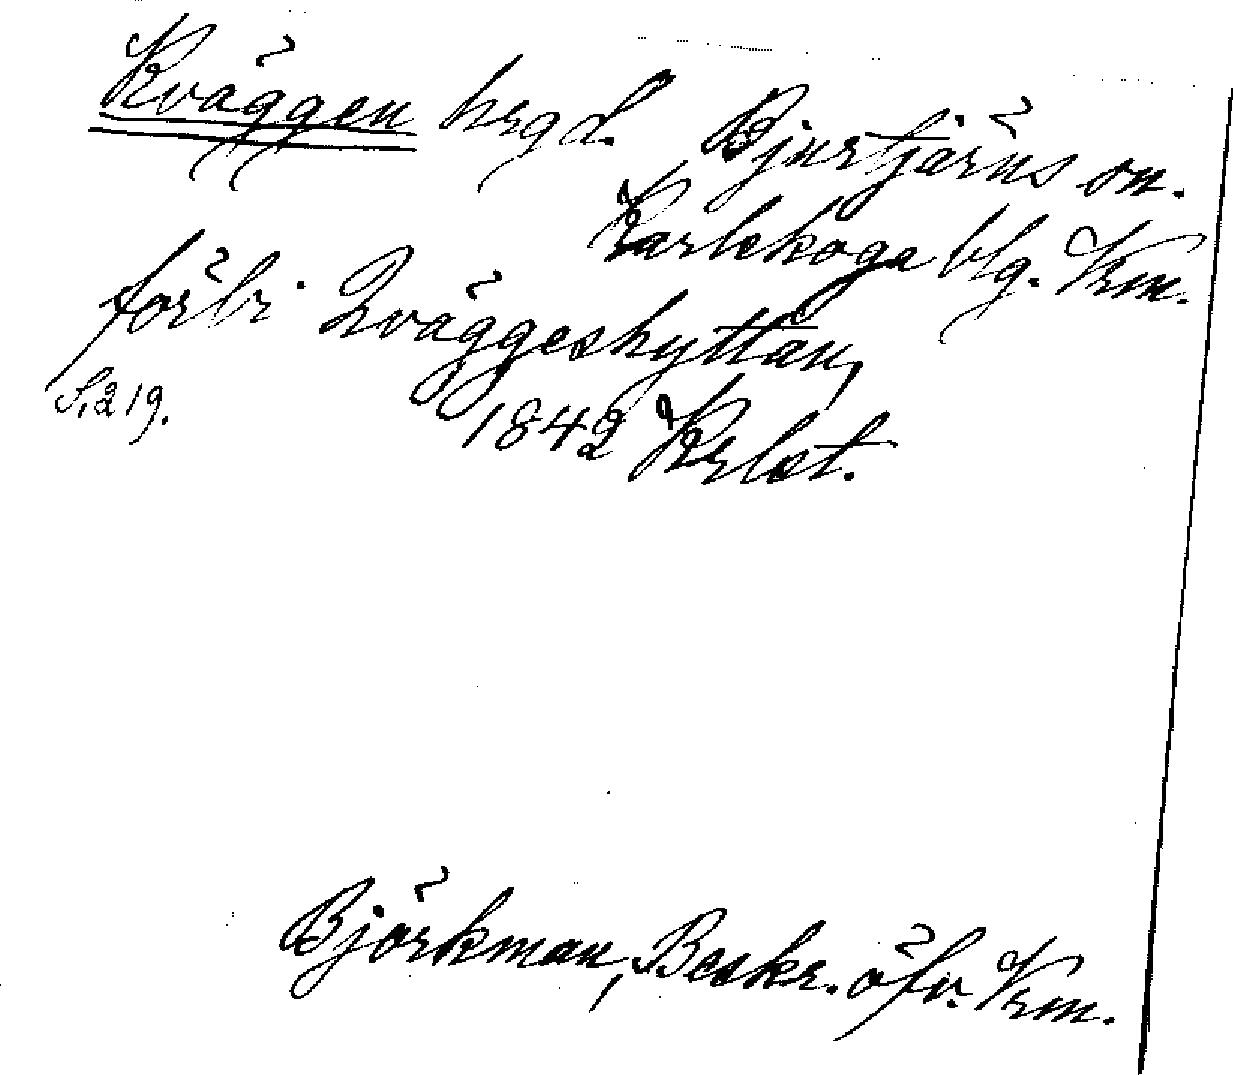 Kväggen hrgd. Bjurtjärns sn.
Karlskoga blg. Vrm.
förbi Qväggeshyttan,
S. 219. 1842 Krlst.
Björkman, Beskr. öfv. Vrm.